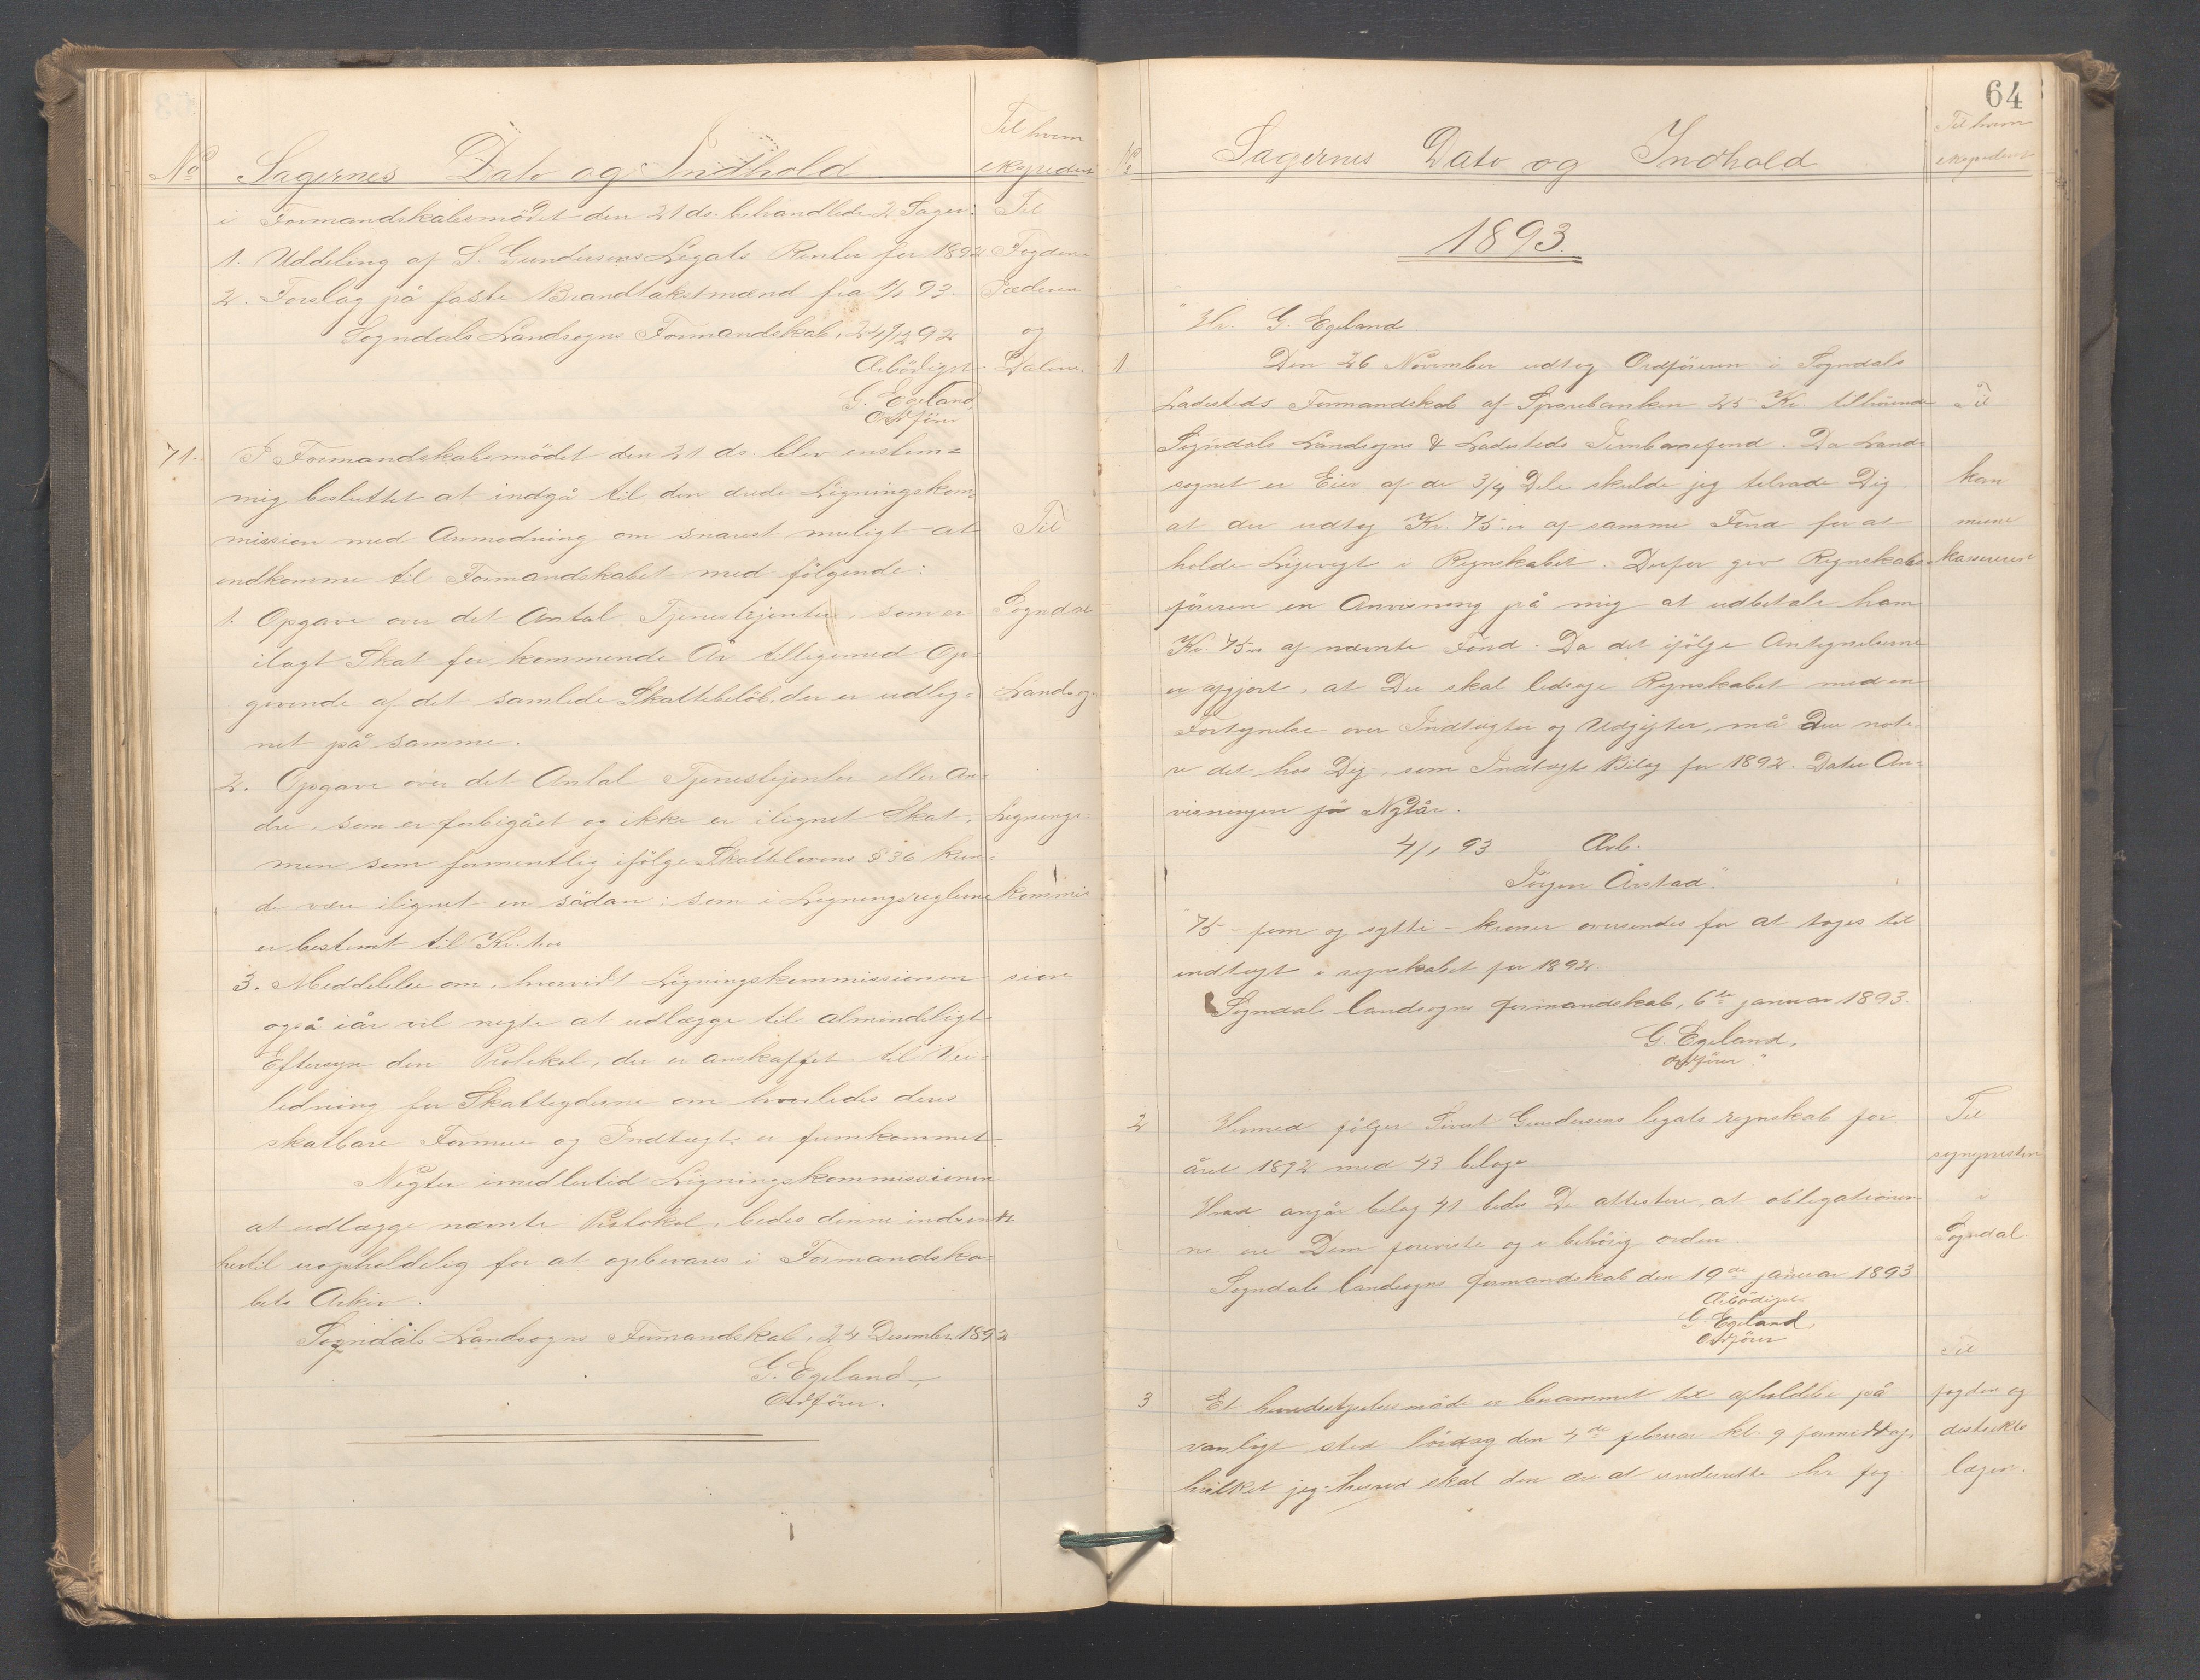 Til hvem
No Sagernes Dato og Indhold expederet
i Formandskabsmödet den 21 ds. behandlede 2 Sager: Til
1. Uddeling af S. Gundersens Legats Renter for 1892 Fogden
2. Forslag på faste Brandtakstmænd fra 1/1 93. Jæderen
Sogndals Landsogns Formandskab, 24/12 92 og
Ærbödigst Dalene.
G. Egeland,
Ordförer
71. I Formandskabsmödet den 21 ds. blev enstem=
mig besluttet at indgå til den ærede Ligningskom=
mission med Anmodning om snarest muligt at Til
indkomme til Formandskabet med fölgende:
1. Opgave over det Antal Tjenestejenter, som er Sogndals
ilagt Skat for kommende År tilligemed Op=
givende af det samlede Skattebelöb, der er udlig= Landsogns
net på samme.
2. Opgave over det Antal Tjenestejenter eller An=
dre, som er forbigået og ikke er ilignet Skat, Lignings=
men som formentlig ifölge Skattelovens § 36 kun=
de være ilignet en sådan; som i Ligningsreglerne kommis
er bestemt til Kr.
3. Meddelelse om, hvorvidt Ligningskommissionen sion
også iår vil negte at udlægge til almindeligt
Eftersyn den Protokol, der er anskaffet til Vei=
ledning for Skatteyderne om hvorledes deres
skatbare Formue og Indtægt er fremkommet.
Negter imedlertid Ligningskommissionen
at udlægge nævnte Protokol, bedes denne indsendt
hertil uopholdelig for at opbevares i Formandska=
bets Arkiv.
Sogndals Landsogns Formandskab, 24 Desember 1892
G. Egeland,
Ordförer.
64
Til hvem
No Sagernes Dato og Indhold expederet
1893.
"Hr. G. Egeland
1 Den 26 November udtog Ordföreren i Sogndals
Ladesteds Formandskab af Sparebanken 25 Kr tilhörende Til
Sogndals Landsogns & Ladesteds Jernbanefond. Da Land=
sognet er Eier af de 3/4 Dele skulde jeg tilraade Dig kom
at du udtog Kr. 75.00 af samme Fond for at mune
holde Ligevegt i Regnskabet. Derfor gav Regnskabs= kassereren
föreren en Anvisning på mig at udbetale ham
Kr. 75.00 af nævnte Fond. Da det ifölge Antegnelserne
er afgjort, at Du skal ledsage Regnskabet med en
Fortegnelse over Indtægter og Udgifter, må Du note=
re det hos Dig, som Indtægts Bilag for 1892. Dater An=
visningen för Nytår.
4/1 93 Ærb.
Jörgen Årstad."
75 - fem og sytti - kroner oversendes for at tages til
indtægt i regnskabet for 1892.
Sogndals landsogns formandskab, 6te januar 1893.
G. Egeland,
Ordförer"
2 Hermed fölger Sivert Gundersens legats regnskab for Til
året 1892 med 43 bilage. sognepresten
Hvad angår bilag 41 bedes De attestere, at obligationer= i
ne ere Dem foreviste og i behörig orden. Sogndal.
Sogndals landsogns formandskab den 19de januar 1893
Ærbödigst
G. Egeland,
Ordförer
Til
3 Et herredsstyrelsesmöde er berammet til afholdelse på fogden og
vanligt sted lördag den 4de februar kl. 9 formiddag, distrikts
hvilket jeg herved skal den ære at underrette hr fog lægen.